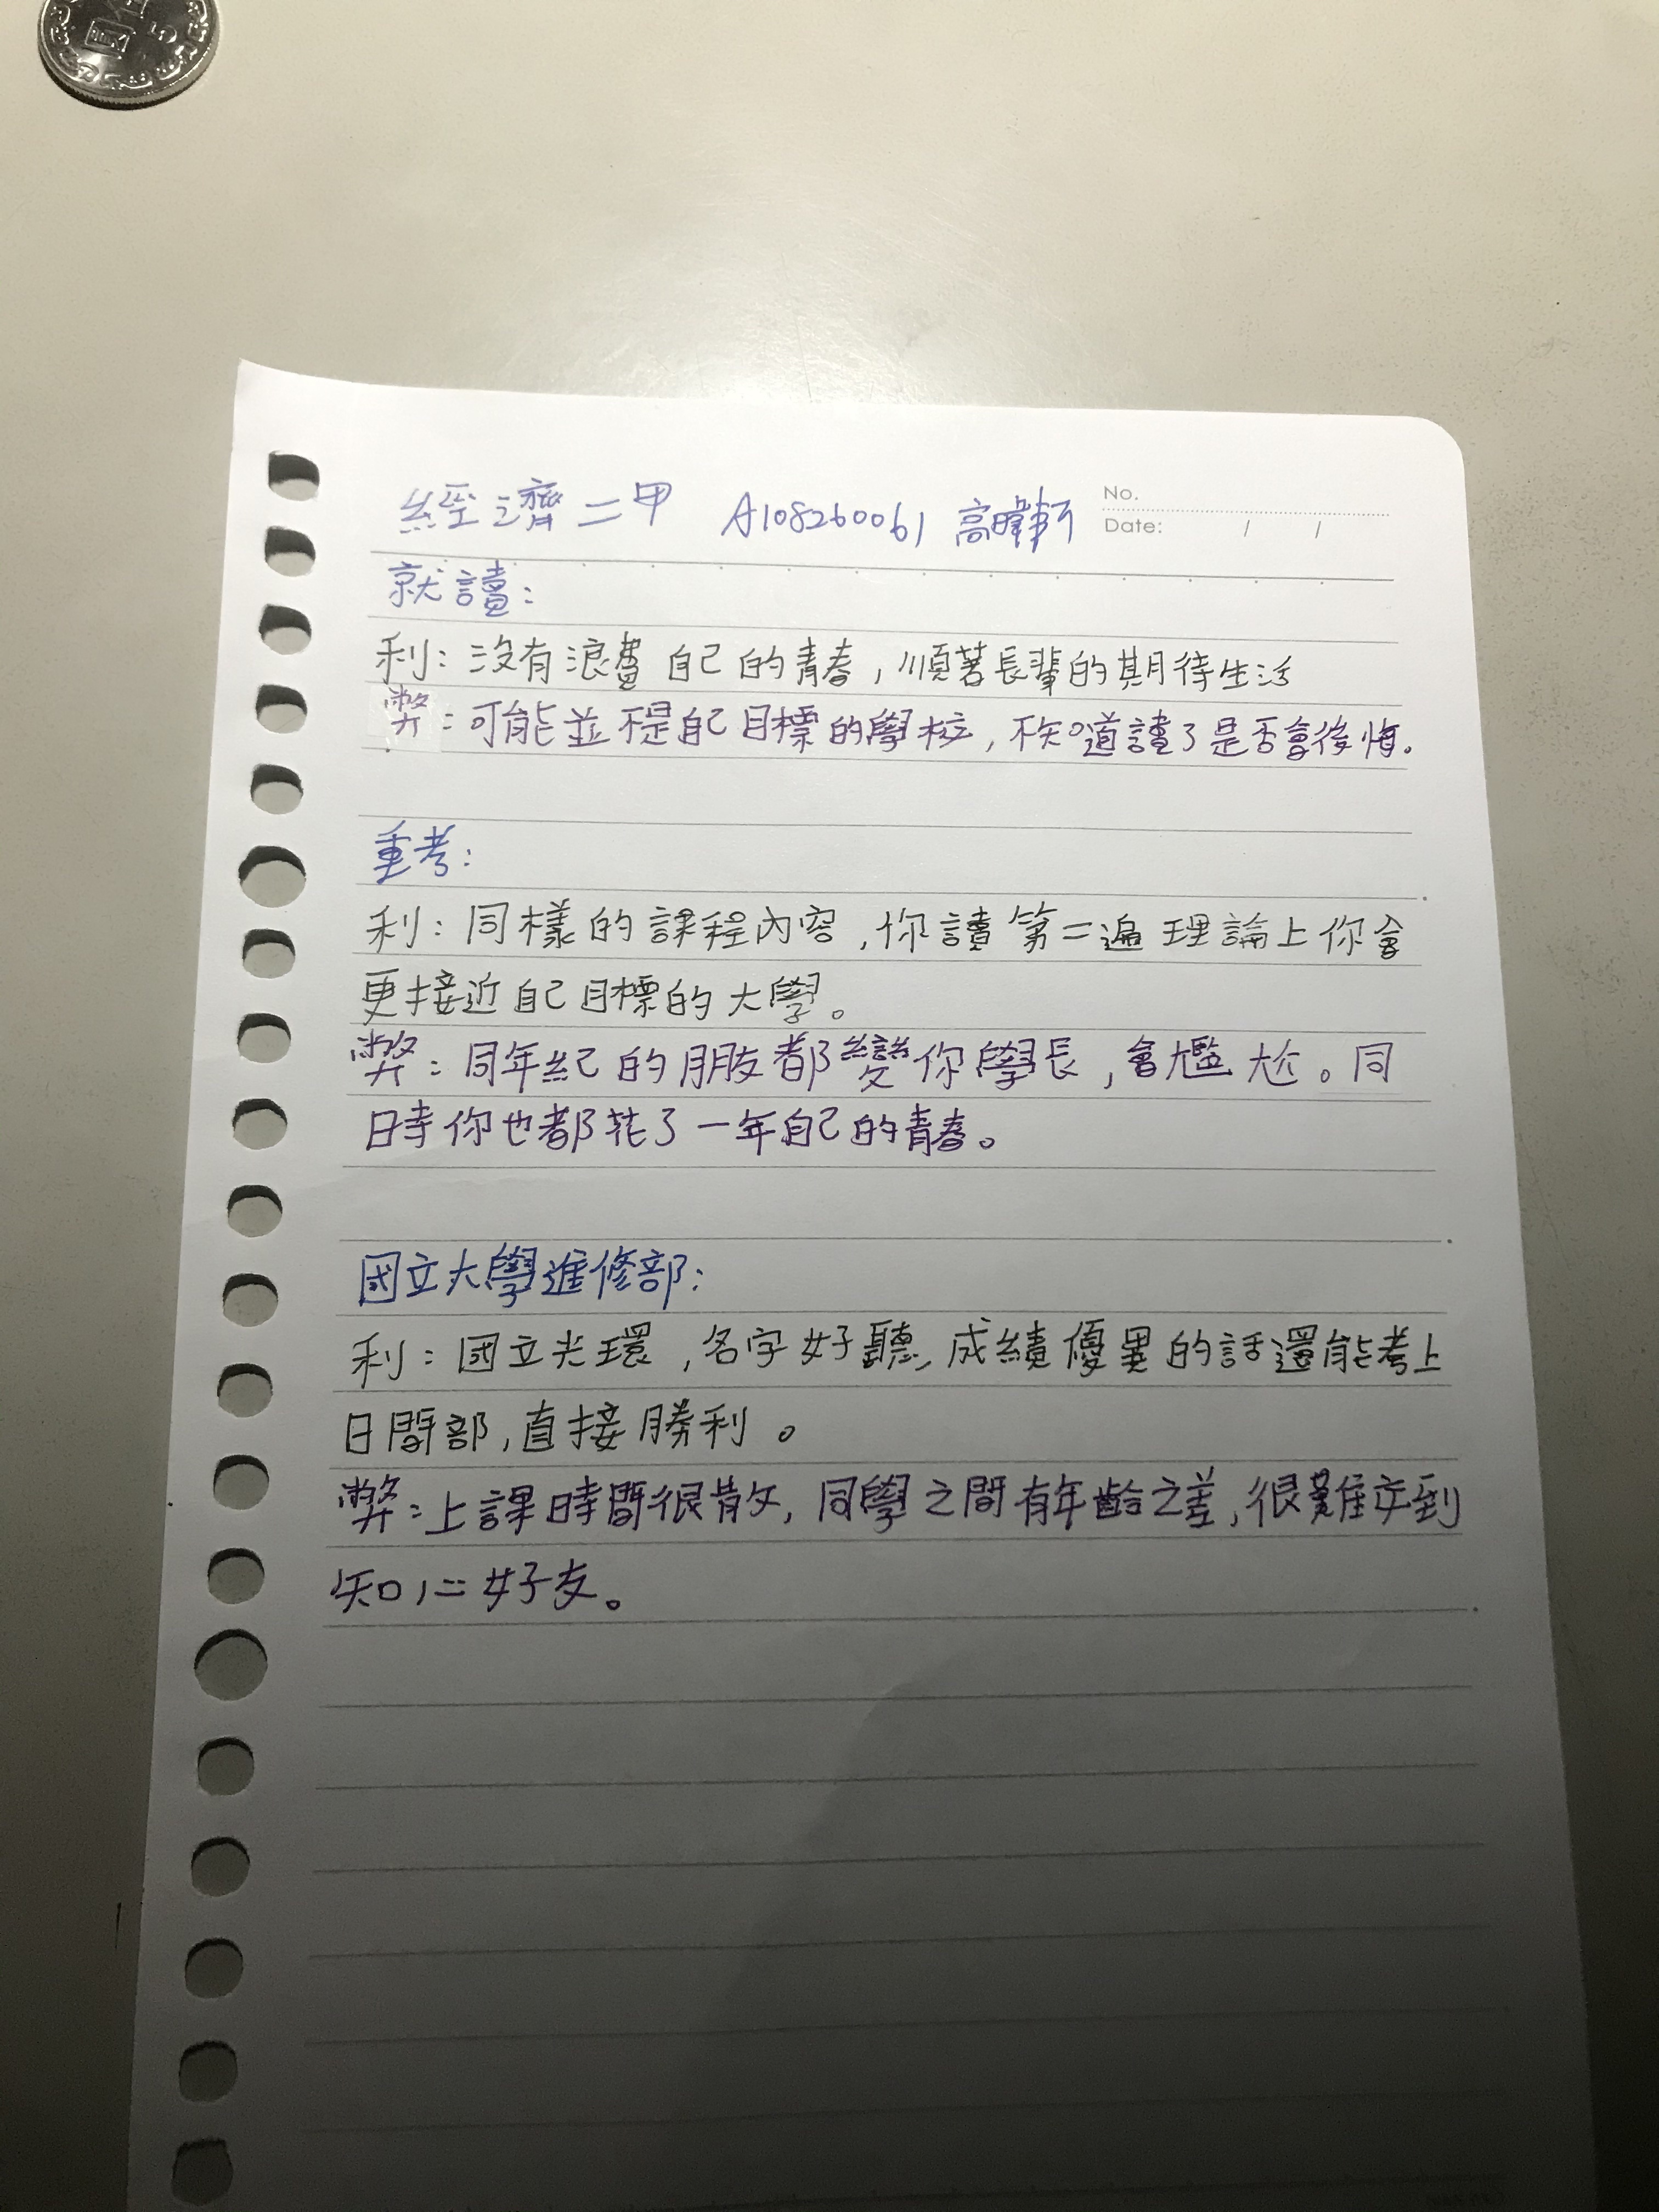 經濟二甲 A108260061 高暐軒
No.
Date: / /
就讀：
利：沒有浪費自己的青春，順著長輩的期待生活
弊：可能並不是自己目標的學校，不知道讀了是否會後悔.
重考：
利：同樣的課程內容，你讀第二遍理論上你會
更接近自己目標的大學。
弊：同年紀的朋友都變你學長，會尷尬。同
時你也都花了一年自己的青春。
國立大學進修部：
利：國立光環，名字好聽，成績優異的話還能考上
日間部，直接勝利。
弊：上課時間很散，同學之間有年齡之差，很難交到
知心好友。